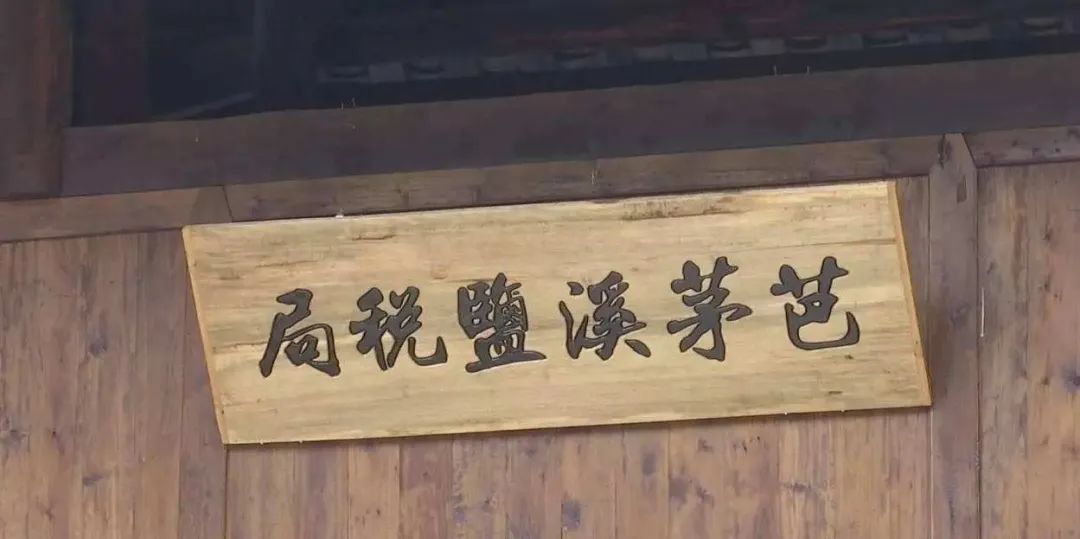 芭茅溪鹽税局